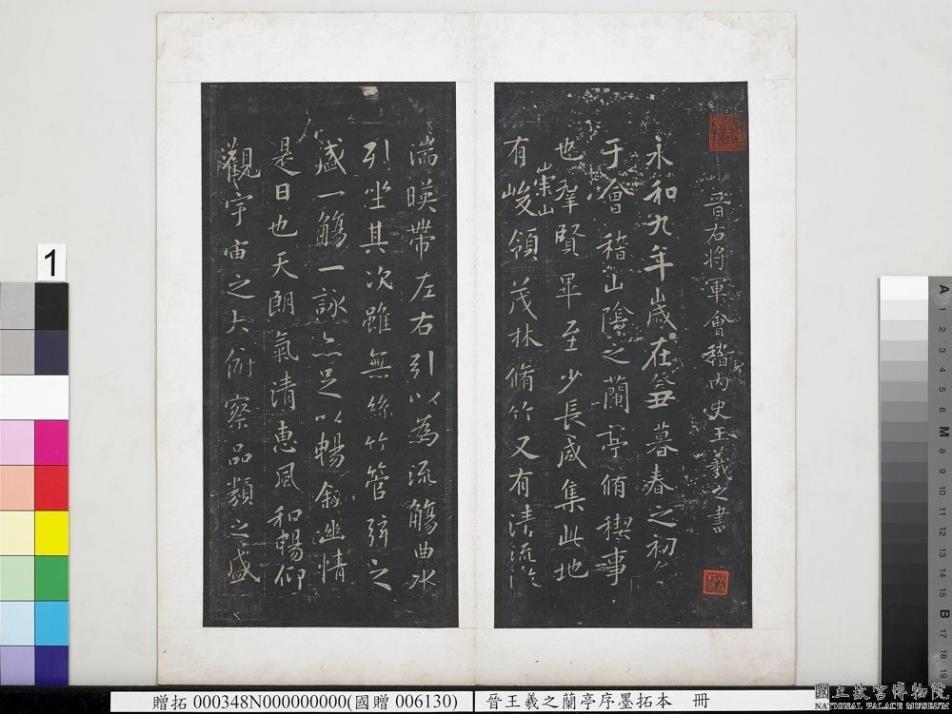 晉右將軍會稽內史王羲之書
永和九年歲在癸丑暮春之初會
于會稽山陰之蘭亭脩稧事
也羣賢畢至少長咸集此地
有崇山峻領茂林脩竹又有清流激
湍暎帶左右引以為流觴曲水
列坐其次雖無絲竹管弦之
盛一觴一詠亦足以暢敘幽情
是日也天朗氣清惠風和暢仰
觀宇宙之大俯察品類之盛
1
A 1 2 3 4 5 6 M 8 9 10 11 12 13 14 15 B 17 18 19
贈拓 000348N000000000(國贈 006130)
晉王羲之蘭亭序墨拓本 冊
國立故宮博物院
NATIONAL PALACE MUSEUM